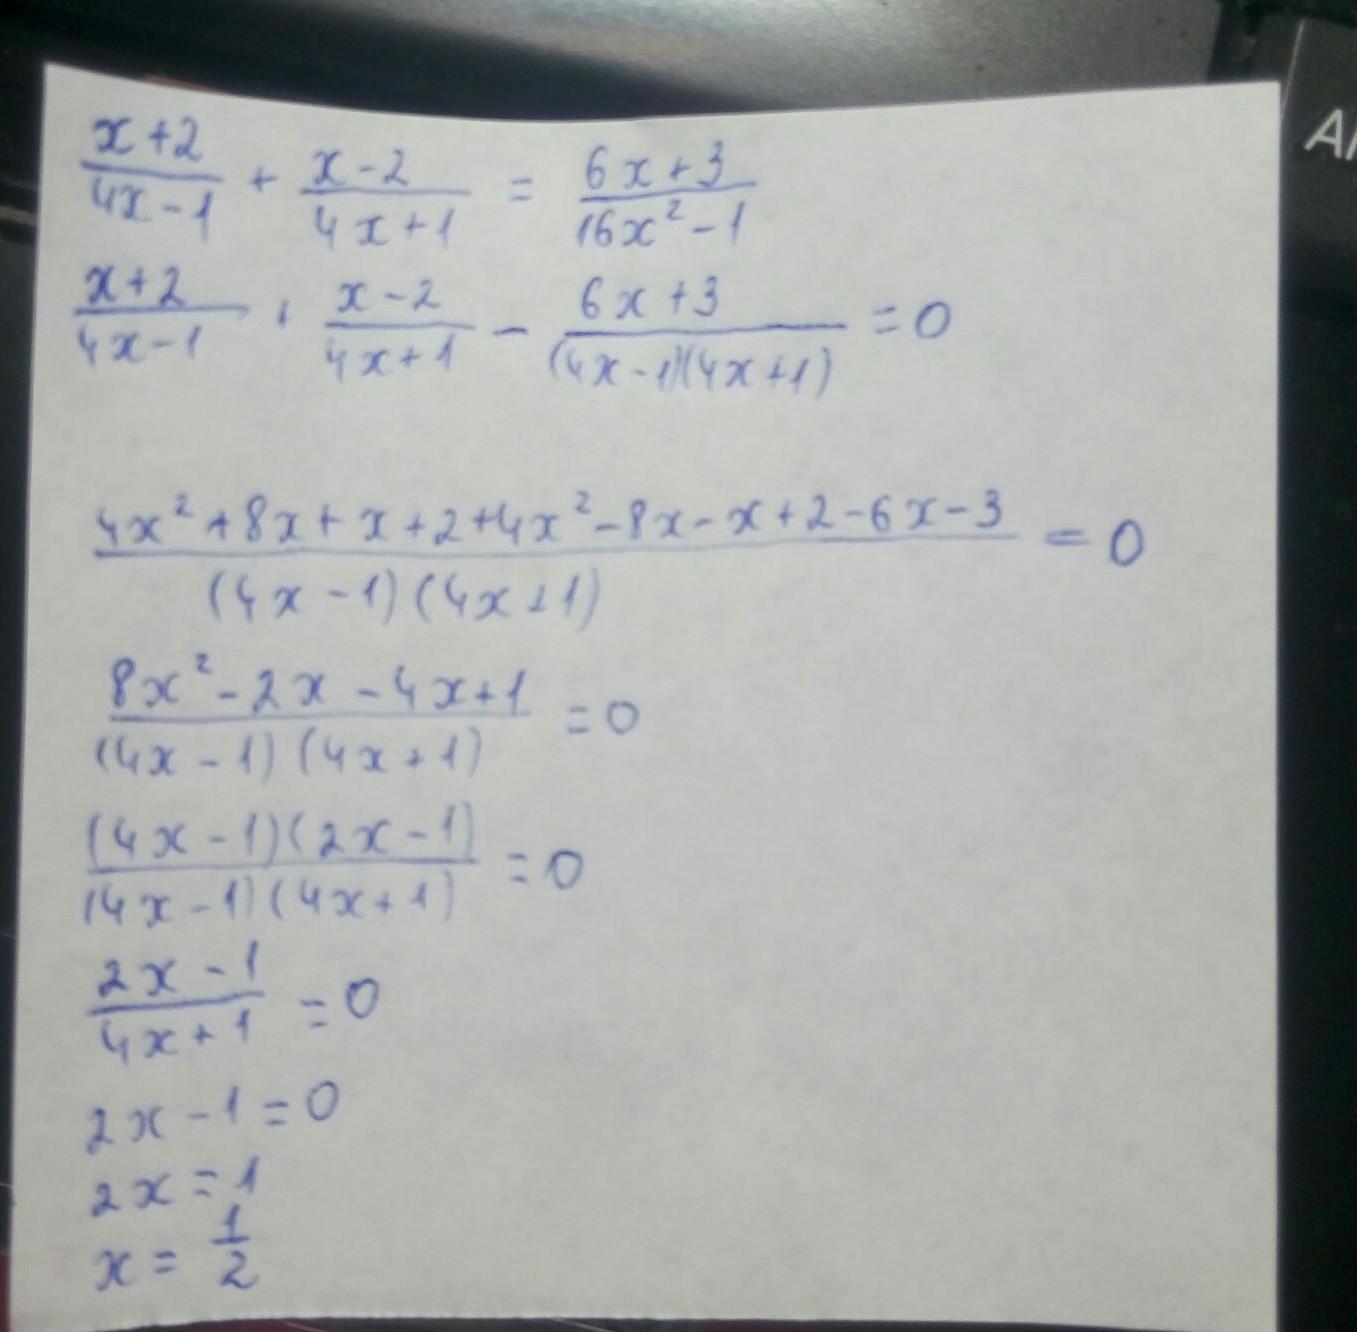 (x+2)/(4x-1) + (x-2)/(4x+1) = (6x+3)/(16x²-1)
(x+2)/(4x-1) + (x-2)/(4x+1) - (6x+3)/((4x-1)(4x+1)) = 0
(4x²+8x+x+2+4x²-8x-x+2-6x-3)/((4x-1)(4x+1)) = 0
(8x²-2x-4x+1)/((4x-1)(4x+1)) = 0
((4x-1)(2x-1))/((4x-1)(4x+1)) = 0
(2x-1)/(4x+1) = 0
2x-1=0
2x=1
x=1/2